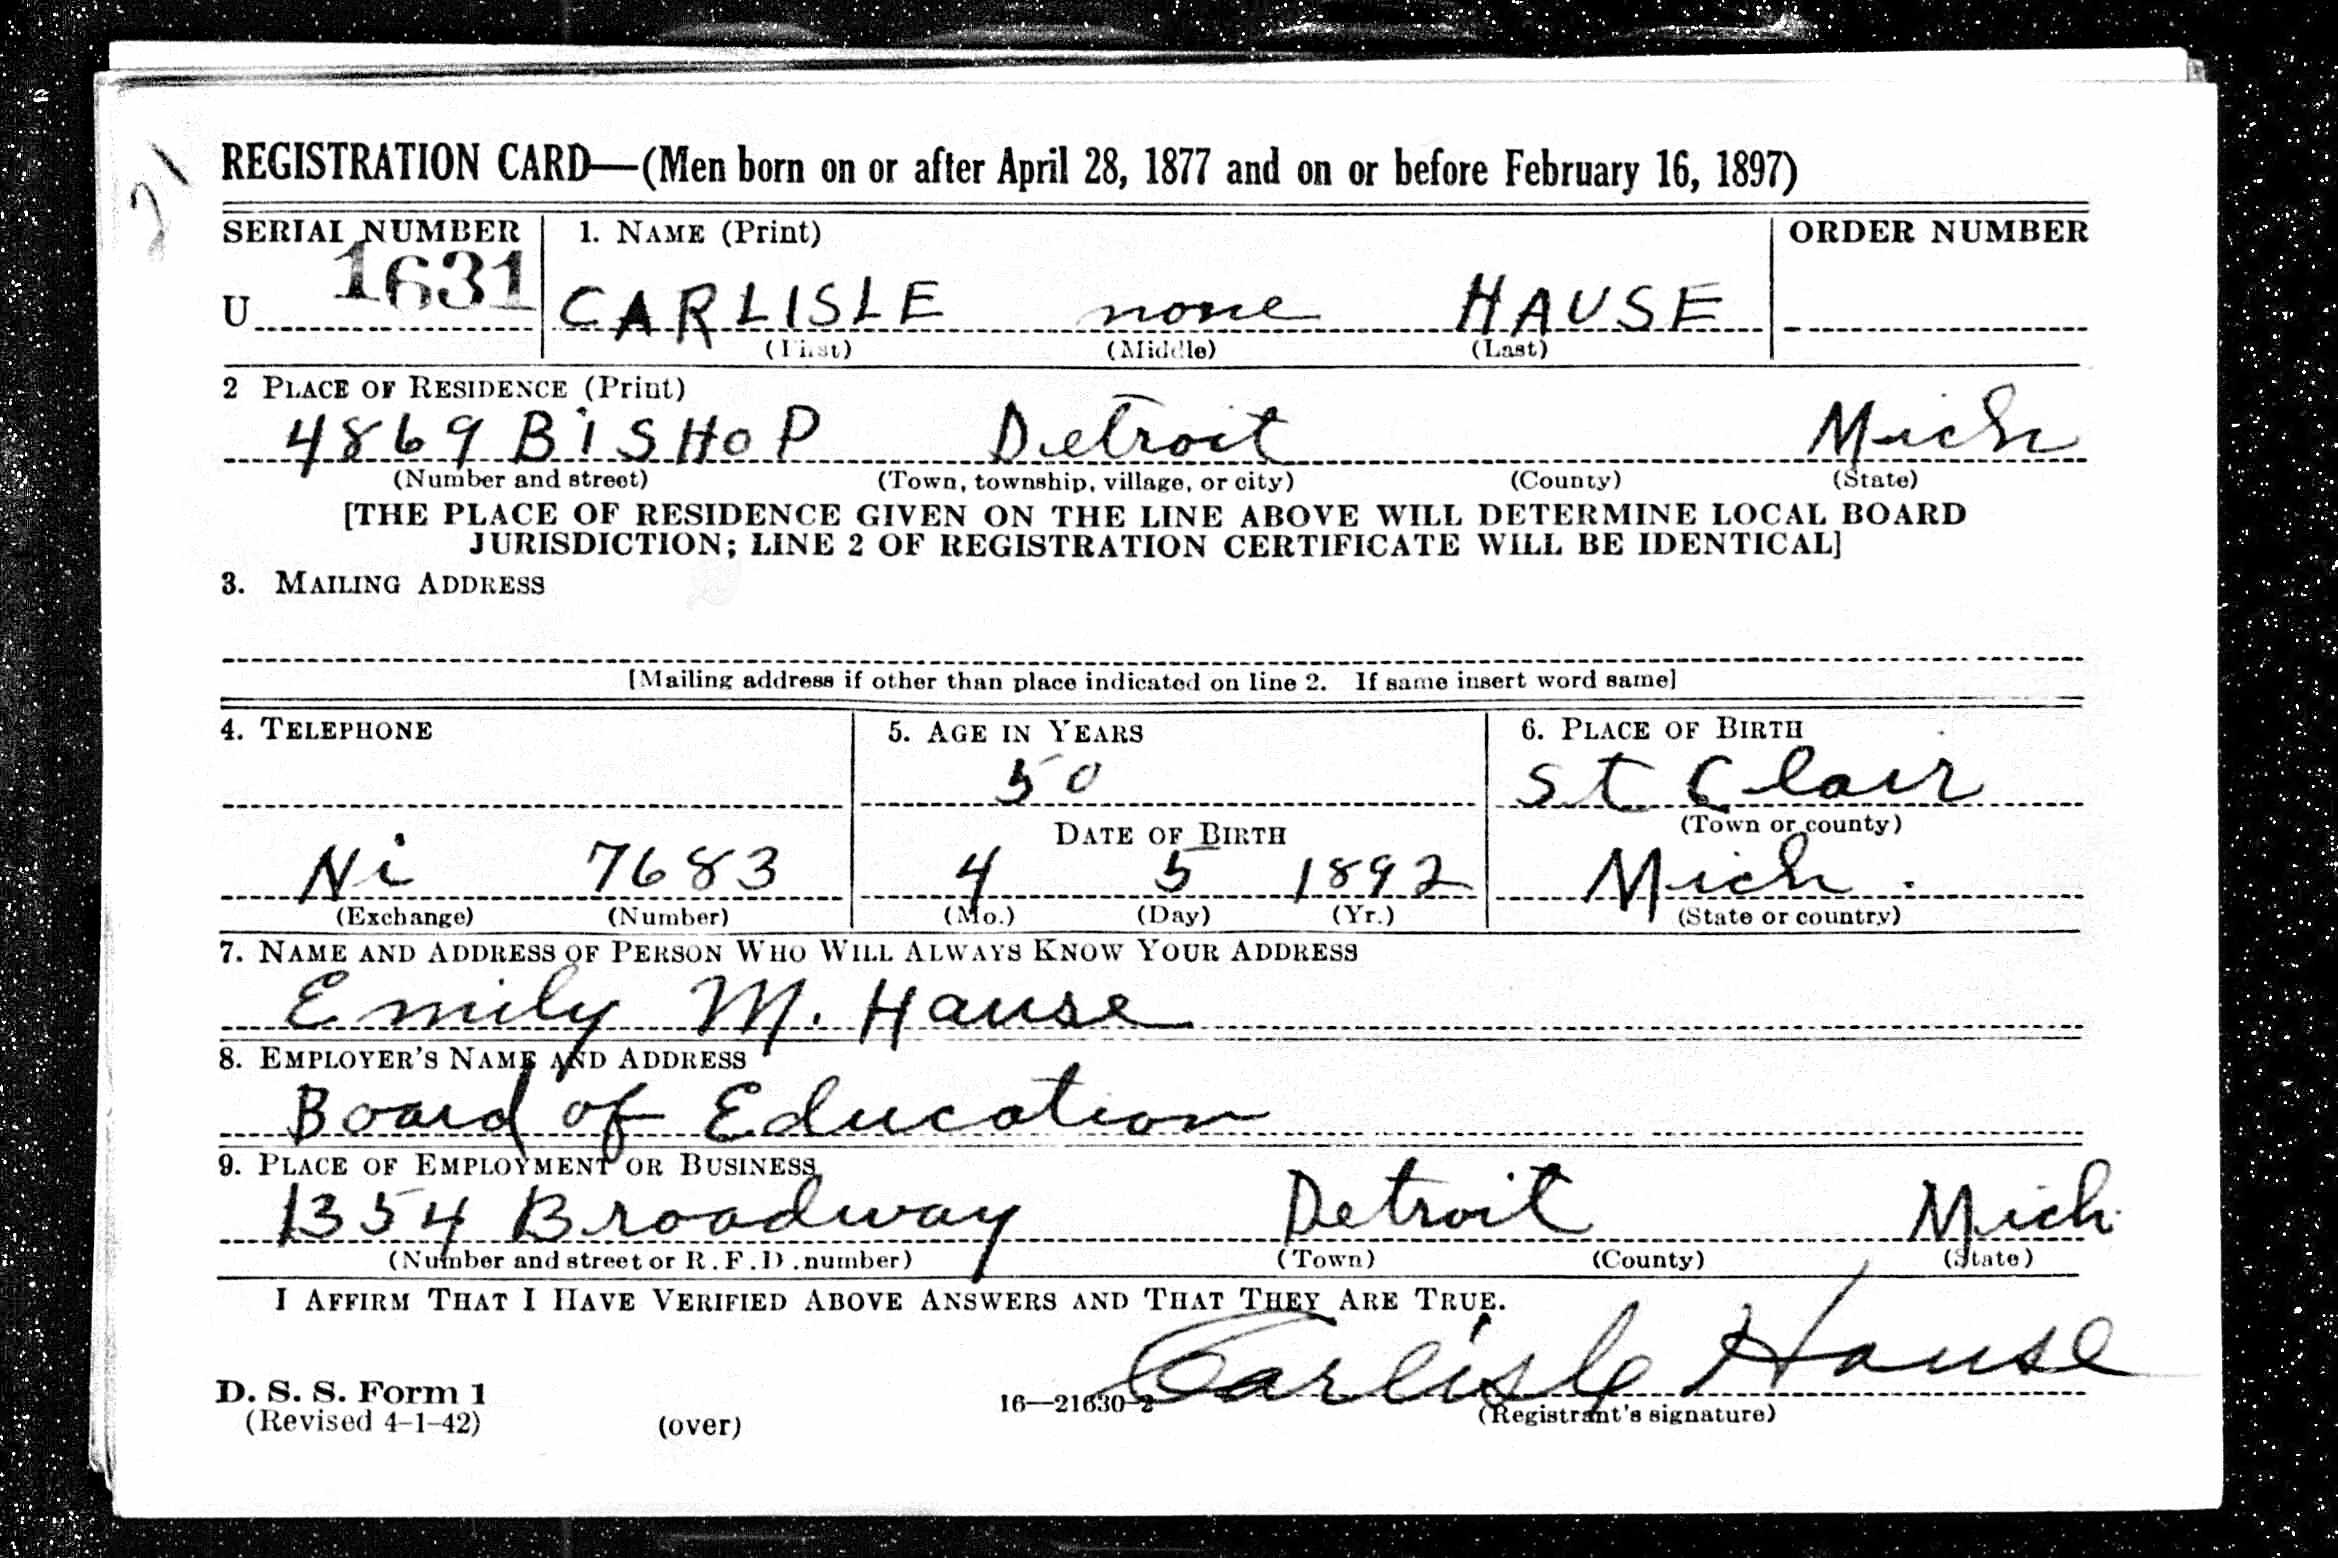 21
REGISTRATION CARD—(Men born on or after April 28, 1877 and on or before February 16, 1897)
SERIAL NUMBER 1. NAME (Print) ORDER NUMBER
U 1631 CARLISLE none HAUSE
(First) (Middle) (Last)
2 PLACE OF RESIDENCE (Print)
4869 BiSHOP Detroit Mich
(Number and street) (Town, township, village, or city) (County) (State)
[THE PLACE OF RESIDENCE GIVEN ON THE LINE ABOVE WILL DETERMINE LOCAL BOARD
JURISDICTION; LINE 2 OF REGISTRATION CERTIFICATE WILL BE IDENTICAL]
3. MAILING ADDRESS
[Mailing address if other than place indicated on line 2. If same insert word same]
4. TELEPHONE 5. AGE IN YEARS 6. PLACE OF BIRTH
50 St Clair
DATE OF BIRTH (Town or county)
Ni 7683 4 5 1892 Mich.
(Exchange) (Number) (Mo.) (Day) (Yr.) (State or country)
7. NAME AND ADDRESS OF PERSON WHO WILL ALWAYS KNOW YOUR ADDRESS
Emily M. Hause
8. EMPLOYER'S NAME AND ADDRESS
Board of Education
9. PLACE OF EMPLOYMENT OR BUSINESS
1354 Broadway Detroit Mich.
(Number and street or R.F.D. number) (Town) (County) (State)
I AFFIRM THAT I HAVE VERIFIED ABOVE ANSWERS AND THAT THEY ARE TRUE.
Carlisle Hause
D. S. S. Form 1 16—21630-2 (Registrant's signature)
(Revised 4-1-42) (over)